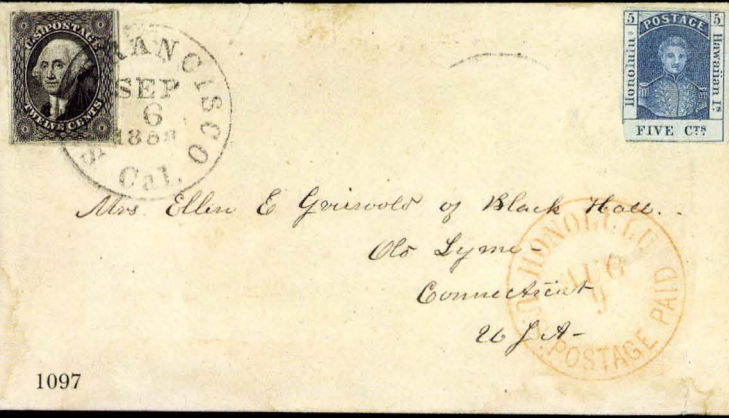 U.S. POSTAGE
TWELVE CENTS
SAN FRANCISCO
SEP
6
Cal.
5 POSTAGE 5
Honolulu
Hawaiian Is.
FIVE CTS
Mrs. Ellen E Griswold of Black Hall.
Old Lyme -
Connecticut
U S A -
HONOLULU
AUG
9
U.S. POSTAGE PAID
1097